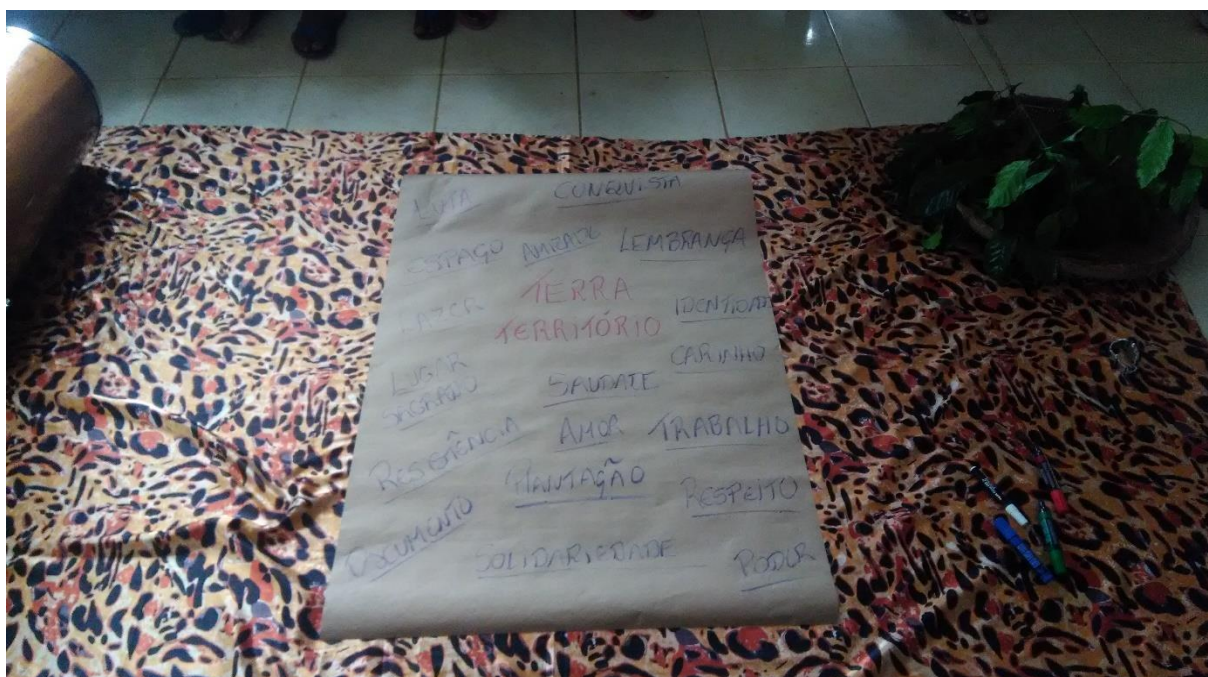 LUTA CONQUISTA
ESPAÇO AMIZADE LEMBRANÇA
TERRA
LAZER IDENTIDADE
TERRITÓRIO
CARINHO
LUGAR
SAGRADO SAUDADE
RESISTÊNCIA AMOR TRABALHO
PLANTAÇÃO
RESPEITO
DOCUMENTO
SOLIDARIEDADE PODER